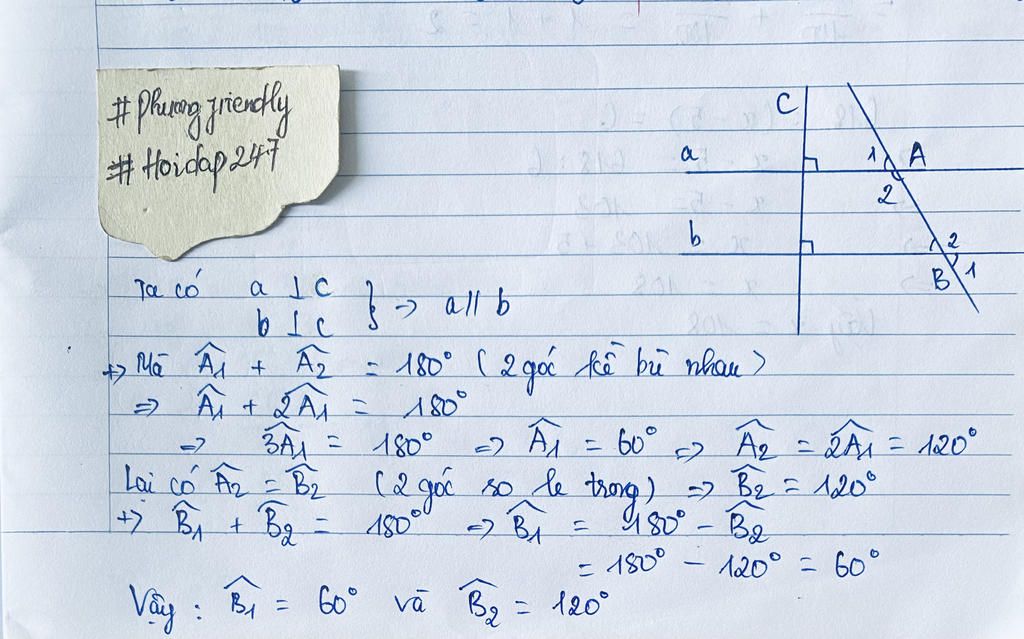 # Phuong friendly
# Hoidap247
C
a
1 A
2
b
2
B 1
Ta có a ⊥ c
b ⊥ c } => a // b
+> Mà Â1 + Â2 = 180° (2 góc kề bù nhau)
=> Â1 + 2Â1 = 180°
=> 3Â1 = 180° => Â1 = 60° => Â2 = 2Â1 = 120°
Lại có Â2 = B̂2 (2 góc so le trong) => B̂2 = 120°
+> B̂1 + B̂2 = 180° => B̂1 = 180° - B̂2
= 180° - 120° = 60°
Vậy : B̂1 = 60° và B̂2 = 120°